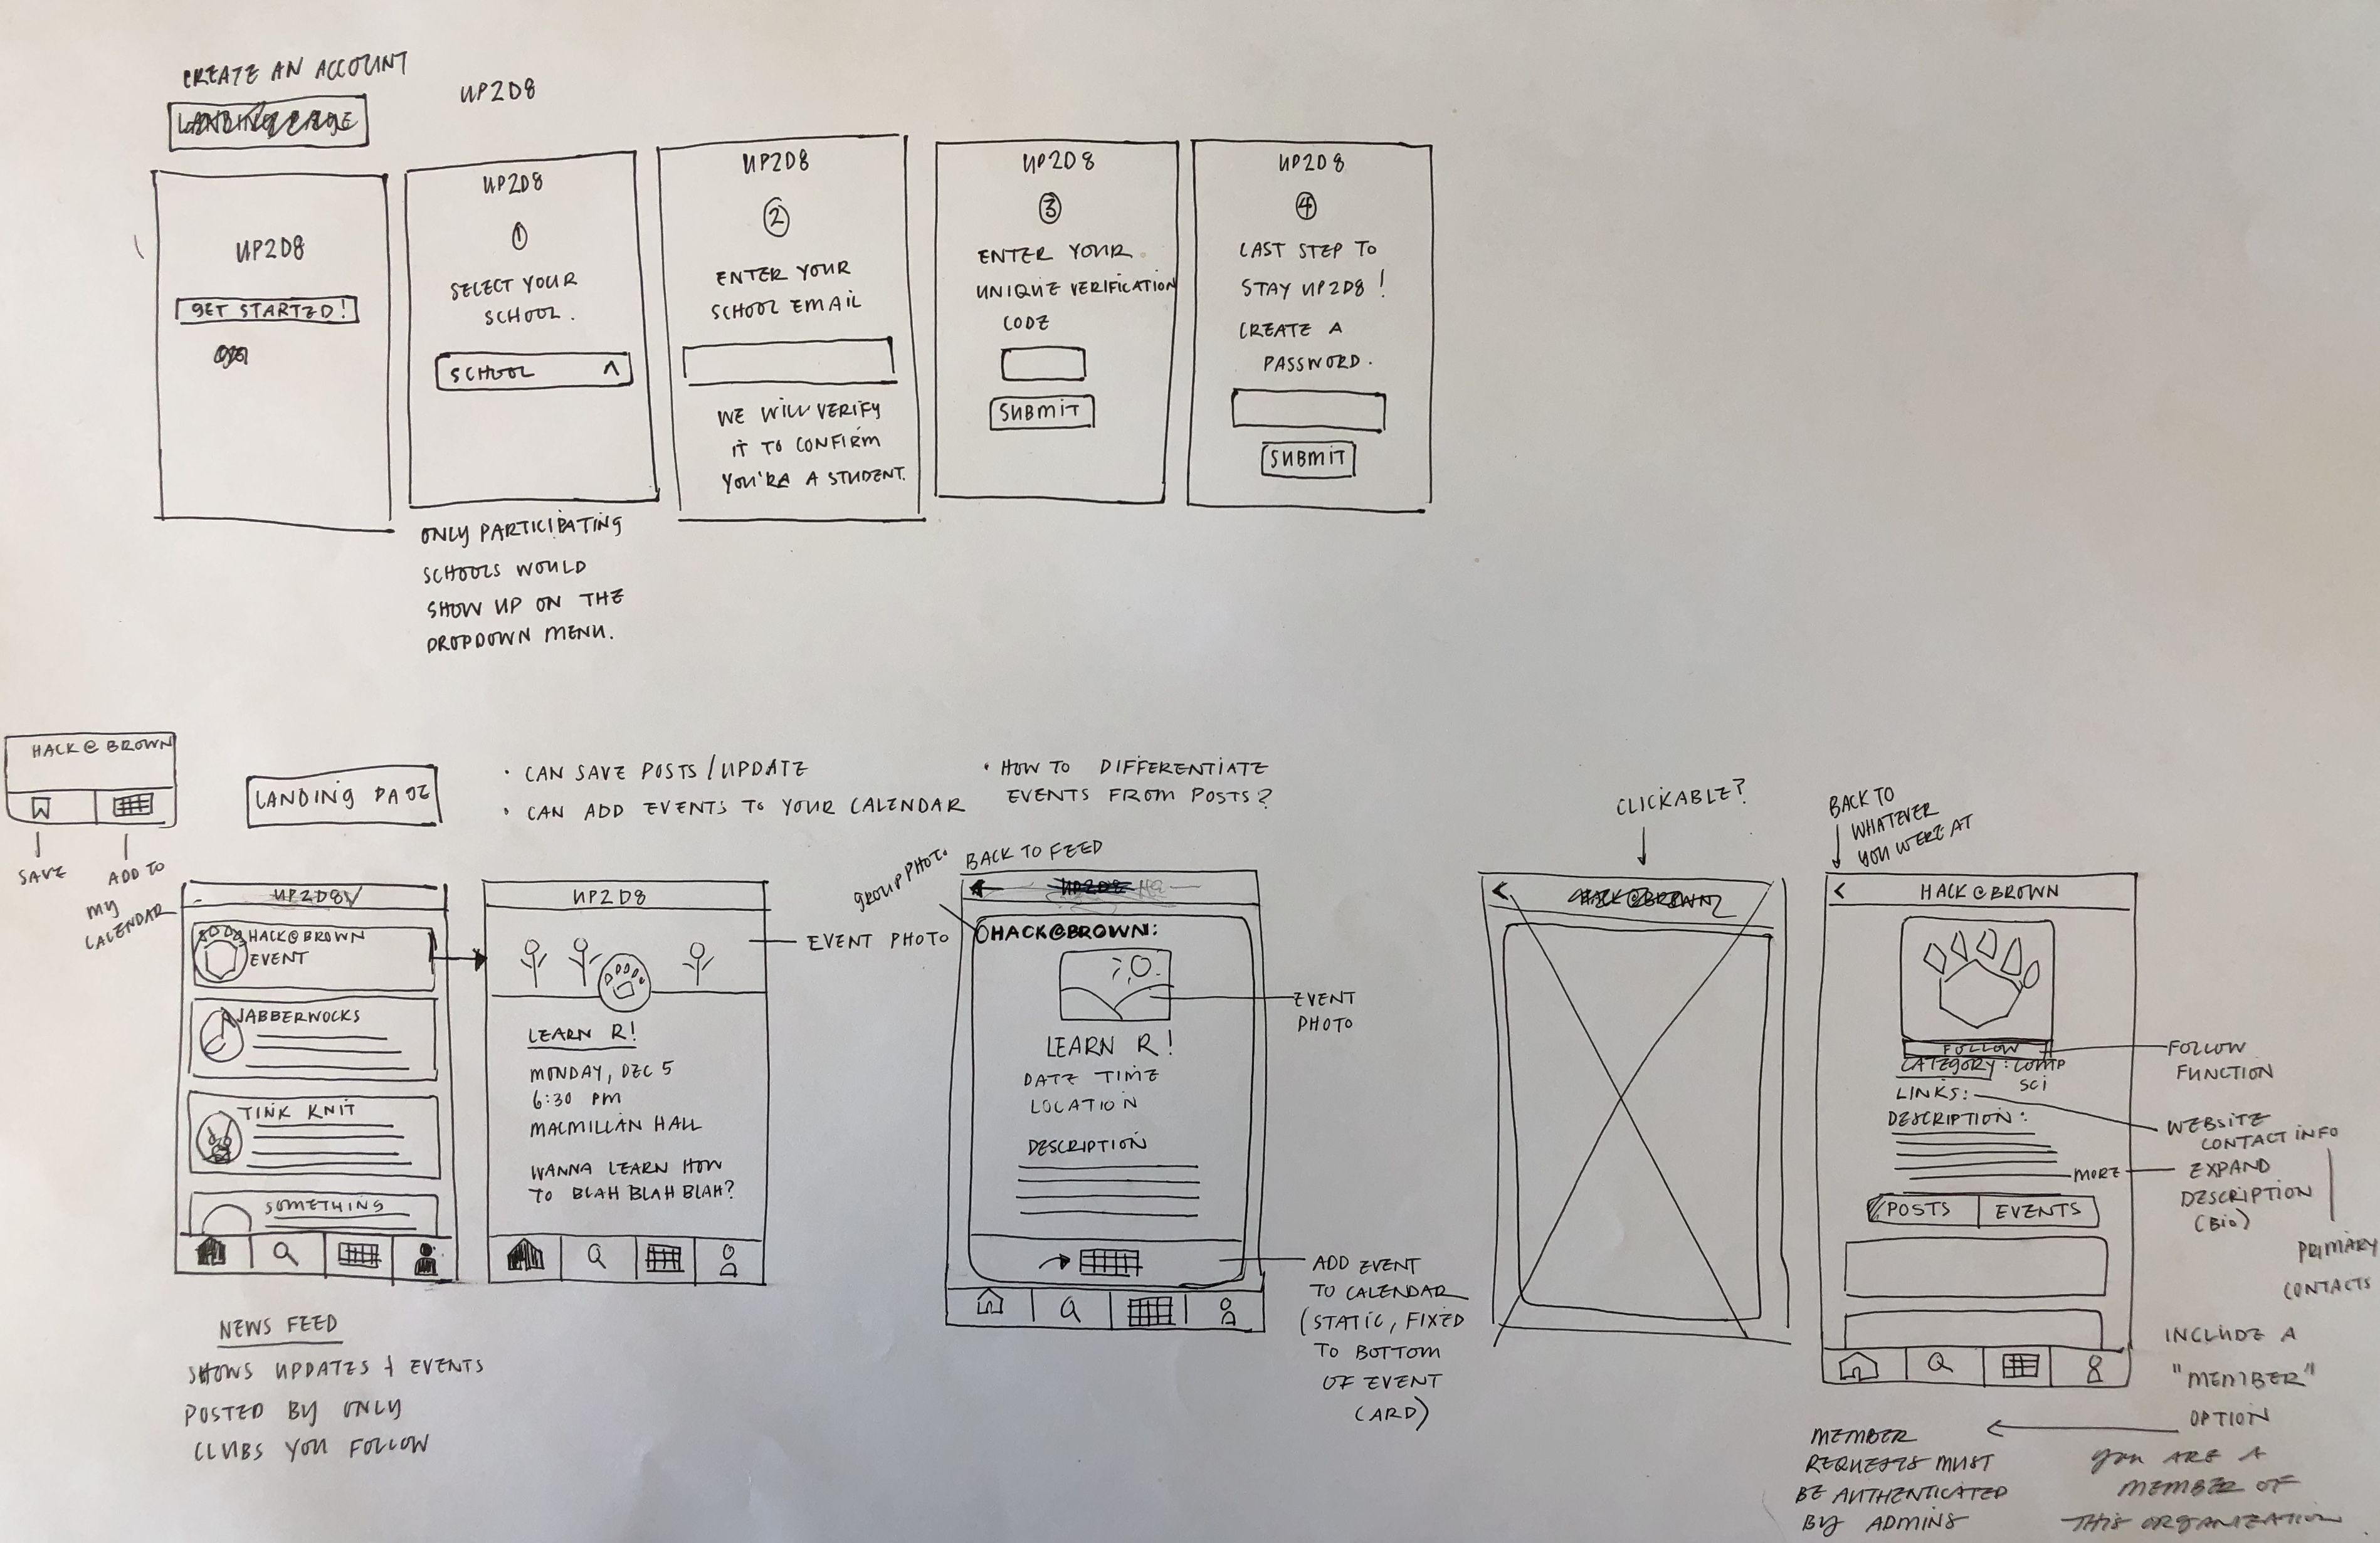 CREATE AN ACCOUNT
LANDING PAGE
UP2D8
UP2D8
GET STARTED!
UP2D8
1
SELECT YOUR
SCHOOL.
SCHOOL
ONLY PARTICIPATING
SCHOOLS WOULD
SHOW UP ON THE
DROPDOWN MENU.
UP2D8
2
ENTER YOUR
SCHOOL EMAIL
WE WILL VERIFY
IT TO CONFIRM
YOU'RE A STUDENT.
UP2D8
3
ENTER YOUR
UNIQUE VERIFICATION
CODE
SUBMIT
UP2D8
4
LAST STEP TO
STAY UP2D8!
CREATE A
PASSWORD.
SUBMIT
HACK@BROWN
SAVE
ADD TO
MY
CALENDAR
LANDING PAGE
• CAN SAVE POSTS/UPDATE
• CAN ADD EVENTS TO YOUR CALENDAR
• HOW TO DIFFERENTIATE
EVENTS FROM POSTS?
UP2D8
HACK@BROWN
EVENT
JABBERWOCKS
TINK KNIT
SOMETHING
NEWS FEED
SHOWS UPDATES + EVENTS
POSTED BY ONLY
CLUBS YOU FOLLOW
UP2D8
EVENT PHOTO
LEARN R!
MONDAY, DEC 5
6:30 PM
MACMILLAN HALL
WANNA LEARN HOW
TO BLAH BLAH BLAH?
GROUP PHOTO
BACK TO FEED
UP2D8
HACK@BROWN:
EVENT
PHOTO
LEARN R!
DATE TIME
LOCATION
DESCRIPTION
ADD EVENT
TO CALENDAR
(STATIC, FIXED
TO BOTTOM
OF EVENT
CARD)
CLICKABLE?
HACK@BROWN
BACK TO
WHATEVER
YOU WERE AT
HACK@BROWN
FOLLOW
FOLLOW
FUNCTION
CATEGORY: COMP
SCI
LINKS:
WEBSITE
CONTACT INFO
DESCRIPTION:
MORE
EXPAND
DESCRIPTION
(BIO)
PRIMARY
CONTACTS
POSTS EVENTS
INCLUDE A
"MEMBER"
OPTION
MEMBER
REQUESTS MUST
BE AUTHENTICATED
BY ADMINS
YOU ARE A
MEMBER OF
THIS ORGANIZATION